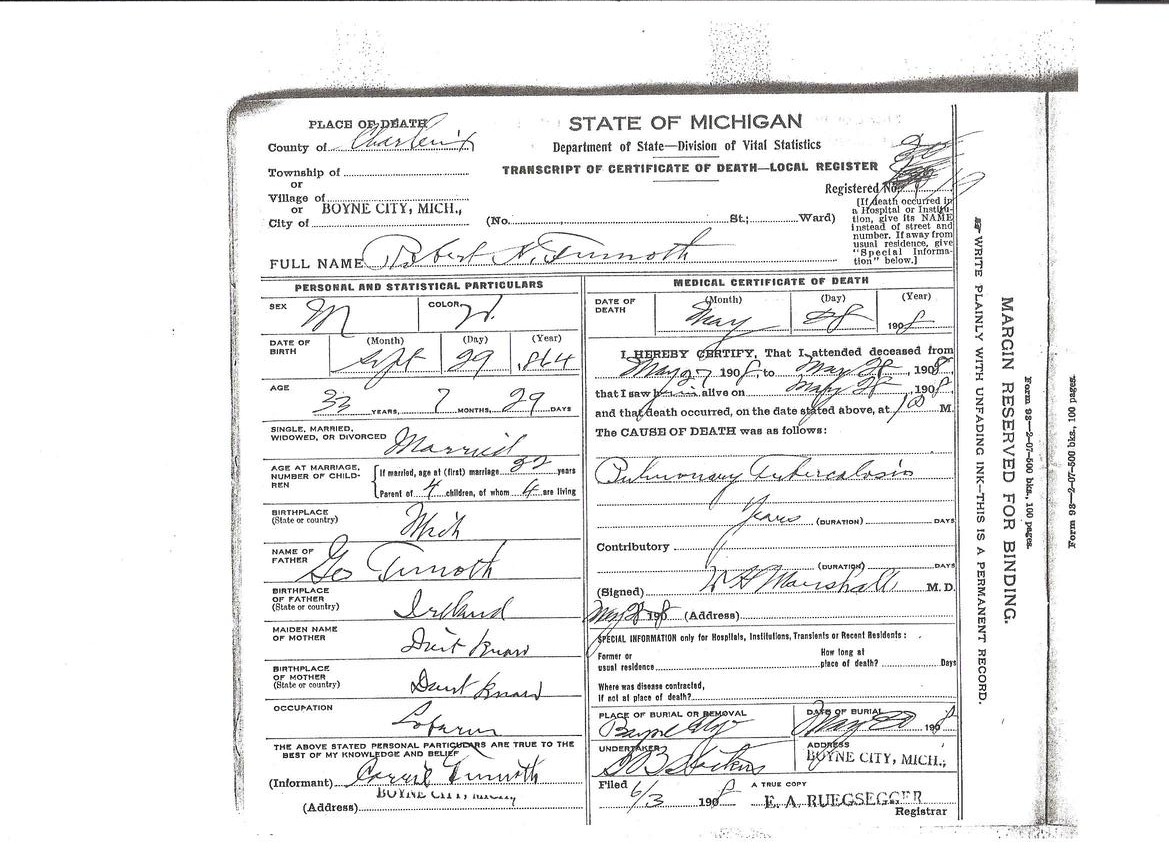 PLACE OF DEATH
County of Charlevoix
Township of
or
Village of
or BOYNE CITY, MICH.,
City of
STATE OF MICHIGAN
Department of State—Division of Vital Statistics
TRANSCRIPT OF CERTIFICATE OF DEATH—LOCAL REGISTER
Registered No.
(No. St.; Ward)
[If death occurred in
a Hospital or Institu-
tion, give its NAME
instead of street and
number. If away from
usual residence, give
"Special Informa-
tion" below.]
FULL NAME Robert N. Turmoth
PERSONAL AND STATISTICAL PARTICULARS
SEX M
COLOR W.
DATE OF BIRTH
(Month) Sept
(Day) 29
(Year) 1864
AGE
33 YEARS, 7 MONTHS, 29 DAYS
SINGLE, MARRIED,
WIDOWED, OR DIVORCED Married
AGE AT MARRIAGE,
NUMBER OF CHILD-
REN
If married, age at (first) marriage 22 years
Parent of 4 children, of whom 4 are living
BIRTHPLACE
(State or country) Mich
NAME OF
FATHER Geo Turmoth
BIRTHPLACE
OF FATHER
(State or country) Ireland
MAIDEN NAME
OF MOTHER Don't Know
BIRTHPLACE
OF MOTHER
(State or country) Don't Know
OCCUPATION
THE ABOVE STATED PERSONAL PARTICULARS ARE TRUE TO THE
BEST OF MY KNOWLEDGE AND BELIEF
(Informant) Carrie Turmoth
(Address) BOYNE CITY, MICH.
MEDICAL CERTIFICATE OF DEATH
DATE OF
DEATH
(Month) May
(Day) 28
(Year) 1908
I HEREBY CERTIFY, That I attended deceased from
May 27 1908, to May 28, 1908,
that I saw him alive on May 28, 1908
and that death occurred, on the date stated above, at M.
The CAUSE OF DEATH was as follows:
Pulmonary Tuberculosis
Years (DURATION) DAYS
Contributory
(DURATION) DAYS
(Signed) W H Marshall M. D.
May 28 1908 (Address)
SPECIAL INFORMATION only for Hospitals, Institutions, Transients or Recent Residents:
Former or
usual residence
How long at
place of death? Days
Where was disease contracted,
If not at place of death?
PLACE OF BURIAL OR REMOVAL
Boyne City
DATE OF BURIAL
May 1908
UNDERTAKER
ADDRESS
BOYNE CITY, MICH.,
Filed
6/3 1908
A TRUE COPY
E. A. RUEGSEGGER
Registrar
WRITE PLAINLY WITH UNFADING INK—THIS IS A PERMANENT RECORD.
MARGIN RESERVED FOR BINDING.
Form 98—2-07-500 bks., 100 pages.
Form 98—2-07-500 bks., 100 pages.